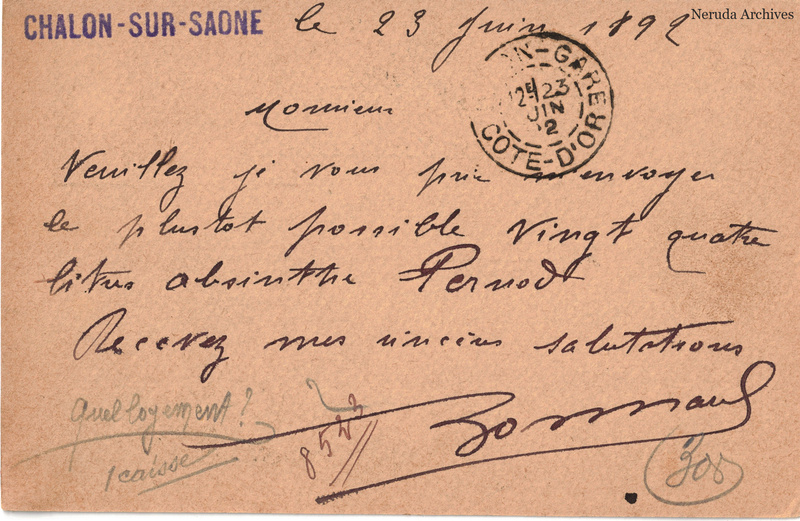 Neruda Archives
CHALON-SUR-SAONE le 23 Juin 1892
N-GARE
2E 23
JUIN
92
COTE-D'OR
Monsieur
Veuillez je vous prie m'envoyer
le plustot possible vingt quatre
litres absinthe Pernod
Recevez mes sincères salutations
Quel logement ?
1 caisse
8523
308